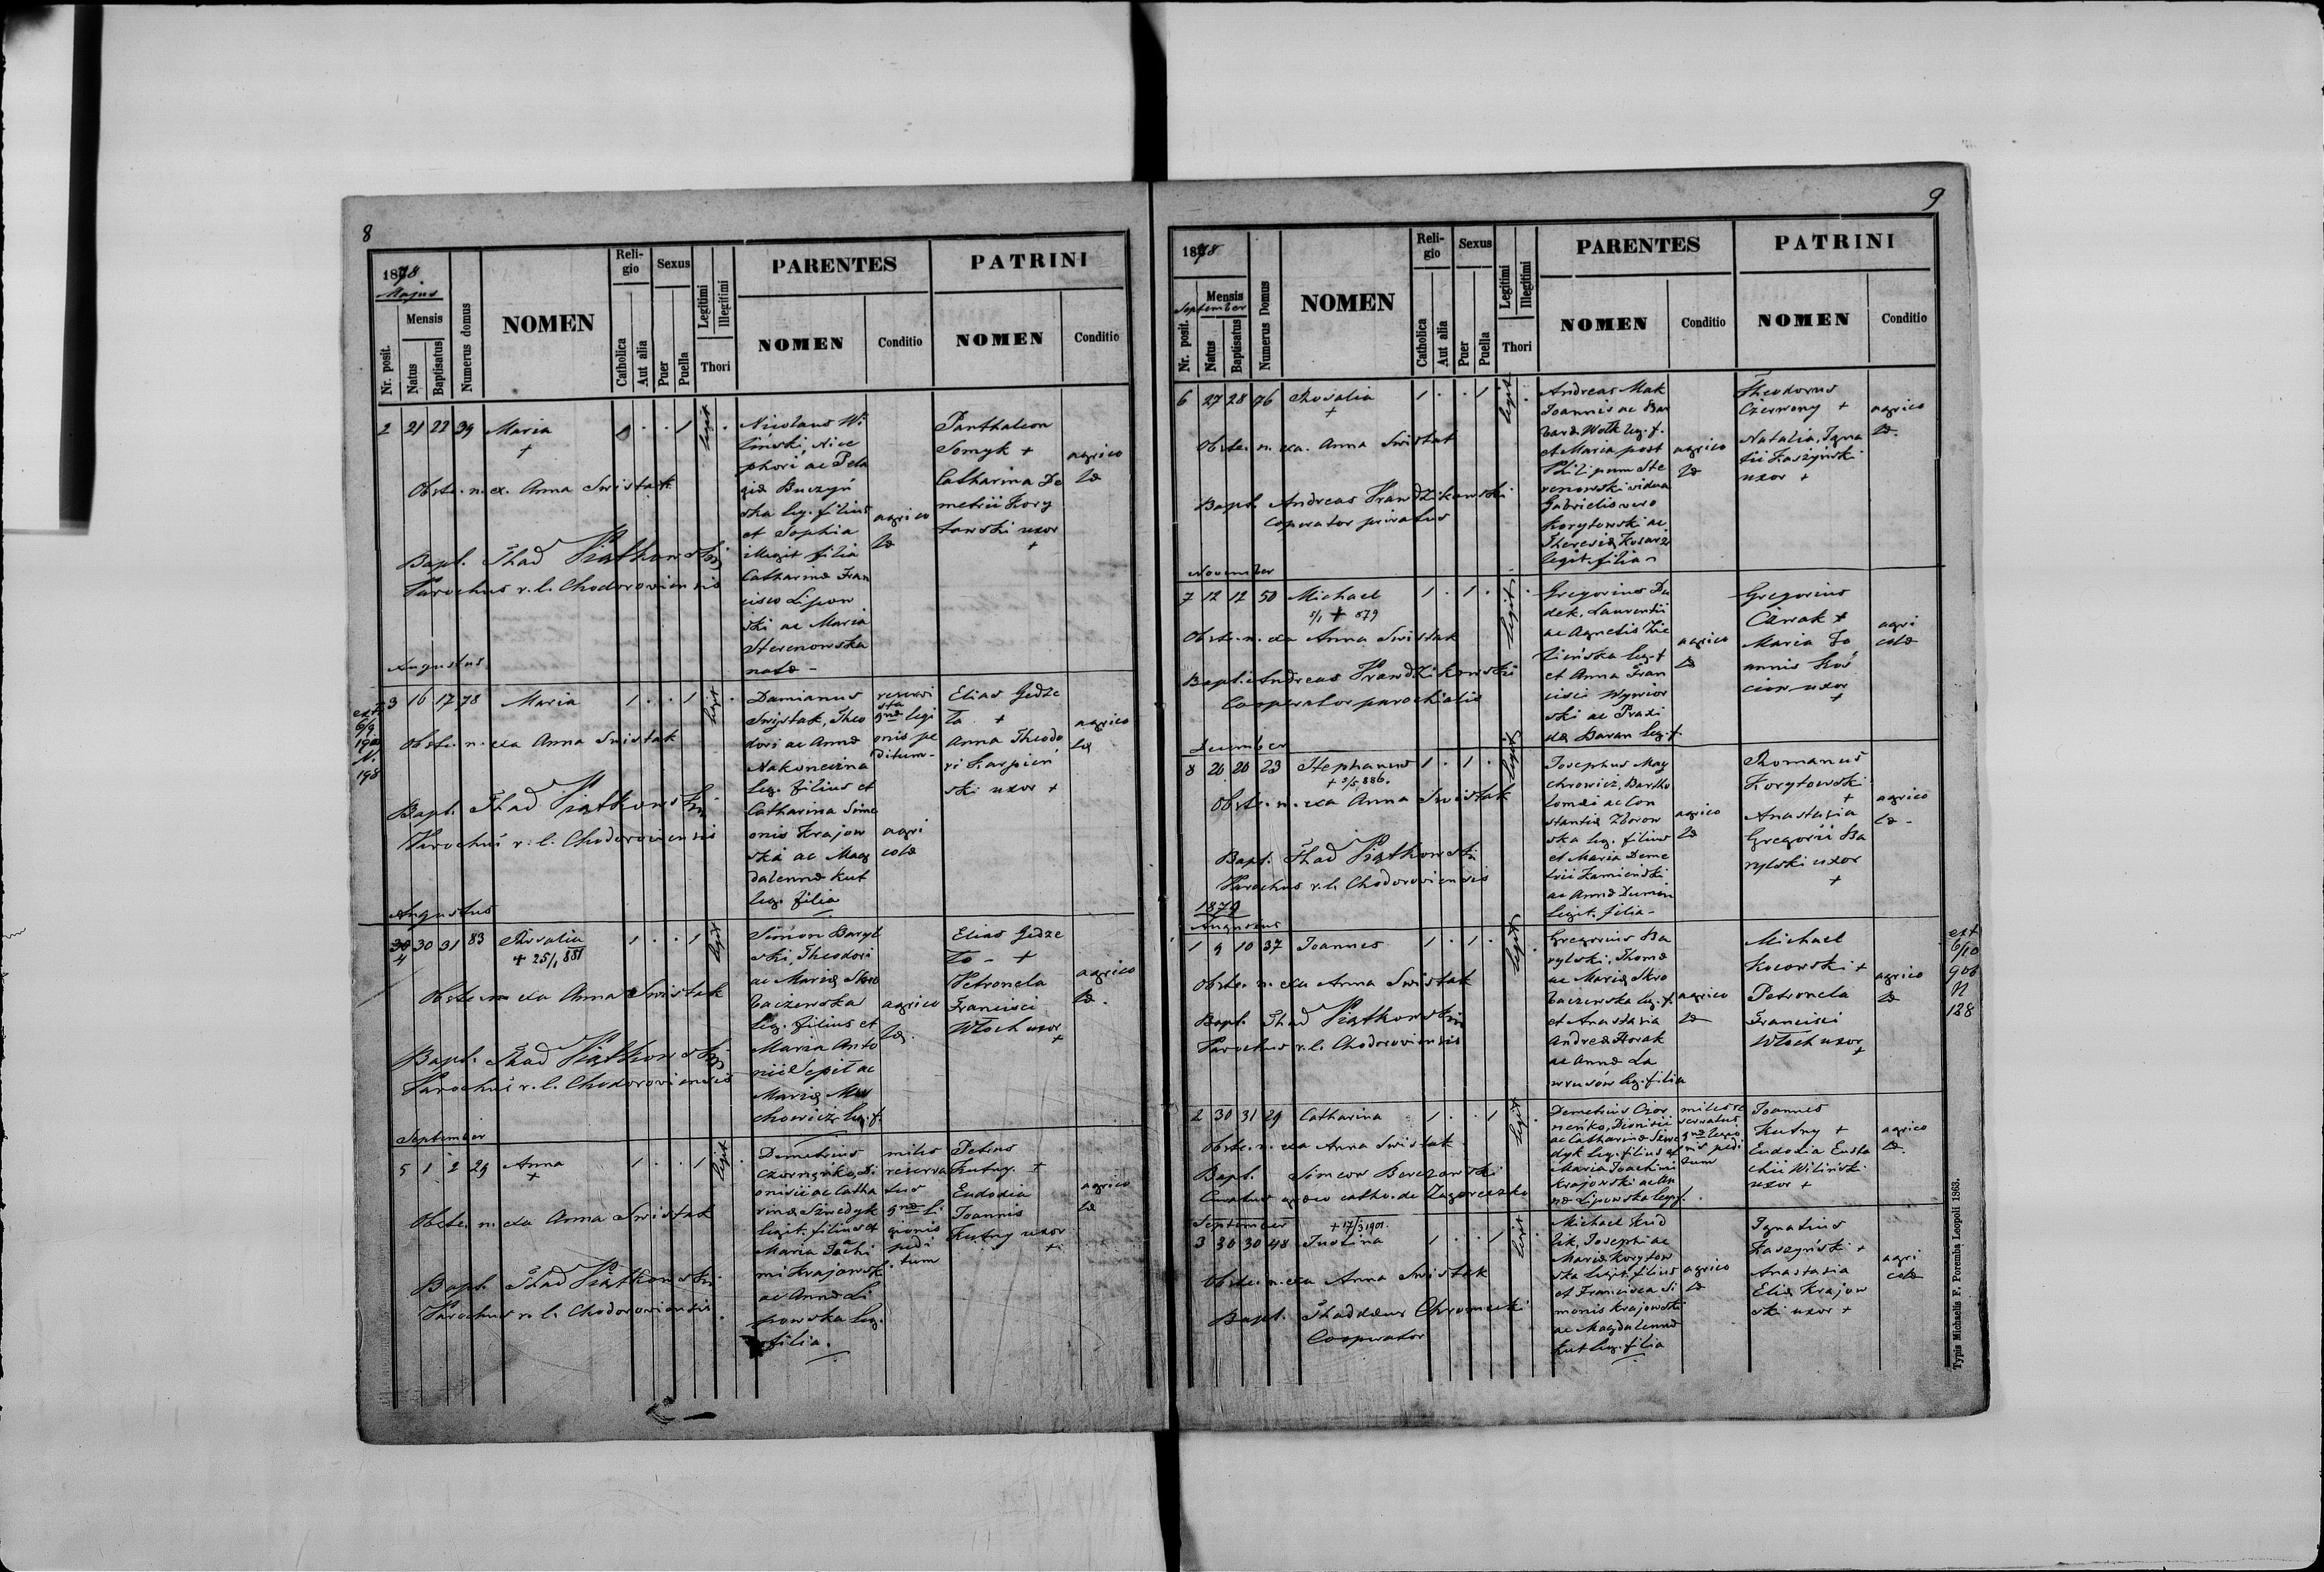 8
1878
Majus
Mensis
Nr. posit.
Natus
Baptisatus
Numerus domus
NOMEN
Reli-
gio
Catholica
Aut alia
Sexus
Puer
Puella
Legitimi
Illegitimi
Thori
PARENTES
NOMEN
Conditio
PATRINI
NOMEN
Conditio
2 21 22 39 Maria 1 . . 1 legit .
+
Obste. n. ex. Anna Swistak
Bapt. Thad Piątkowski
Parochus r. l. Chodoroviensis
Nicolaus Wi
liński, Nice
phori ac Pela
giæ Buczyń
ska leg. filius
et Sophia
illegit filia
Catharinæ Fran
cisco Lipow
ski ac Maria
Sterenowska
natæ -
agrico
læ
Panthaleon
Somyk +
Catharina De
metrii Kory
towski uxor
+
agrico
læ
Augustus
ext
6/9
190
N.
198
3 16 17 78 Maria 1 . . 1 legit .
Obste. n. exa Anna Swistak
Bapt. Thad Piątkowski
Parochus r. l. Chodoroviensis
Damianus
Swistak, Theo
dori ac Annæ
Nakoneczna
leg. filius et
Catharina Sime
onis Krajow
ski ac Mag
dalennæ Kut
leg. filia
reservi
sta
9næ legi
onis pe
ditum -
agri
colæ
Elias Gedze
ła +
Anna Theodo
ri Karpień
ski uxor +
agrico
læ
Augustus
4 30 31 83 Rosalia 1 . . 1 legit
+ 25/1 881
Obste. n. exa Anna Swistak
Bapt. Thad Piątkowski
Parochus r. l. Chodoroviensis
Simon Baryl
ski, Theodori
ac Mariæ Skro
baczewska
leg. filius et
Maria Anto
nii Sepit ac
Mariæ May
chrowicz leg. f.
agrico
læ.
Elias Gedze
ło - +
Petronela
Francisci
Włoch uxor
+
agrico
læ.
September
5 1 2 29 Anna 1 . . 1 legit .
+
Obste. n. exa Anna Swistak
Bapt. Thad Piątkowski
Parochus r. l. Chodoroviensis.
Demetrius
Czornenko, Di
onisii ac Catha
rinæ Szwedyk
legit. filius et
Maria Joachi
mi Krajowsk
ac Annæ Li
powska leg.
filia.
miles
reserva
tus
9næ le
gionis
pedi
tum
Petrus
Kutny. +
Eudodia
Joannis
Kutny uxor
+
agrico
læ
9
1878
September
Mensis
Nr. posit.
Natus
Baptisatus
Numerus Domus
NOMEN
Reli-
gio
Catholica
Aut alia
Sexus
Puer
Puella
Legitimi
Illegitimi
Thori
PARENTES
NOMEN
Conditio
PATRINI
NOMEN
Conditio
6 27 28 76 Rosalia 1 . . 1 legit .
+
Obste. n. exa. Anna Swistak
Bapt. Andreas Prawdzikowski
Cooperator privatus
Andreas Mak
Joannis ac Bar
baræ Wołk leg. f.
et Maria post
Philipum Ste
renowski vidua
Gabrielis vero
Korytowski ac
Theresiæ Kosarz
legit. filia
agrico
læ
Theodorus
Czerwony +
Natalia, Igna
tii Kaszyński
uxor +
agrico
læ.
November
7 12 12 50 Michael 1 . 1 . legit .
5/1 + 879
Obste. n. exa Anna Swistak
Bapt. Andreas Prawdzikowski
Cooperator parochialis
Gregorius Du
dek, Laurentii
ac Agnetis Zie
lińska leg. f
et Anna Fran
cisci Wywior
ski ac Praxi
dæ Baran leg. f.
agrico
læ
Gregorius
Cwiak +
Maria Jo
annis Koś
ciow uxor
+
agri
colæ
December
8 20 20 23 Stephanus 1 . 1 . legit
+ 2/5 886.
Obste. n. exa Anna Swistak
Bapt. Thad Piątkowski
Parochus r. l. Chodoroviensis
Josephus May
chrowicz, Bartho
lomæi ac Con
stantiæ Zborow
ska leg. filius
et Maria Deme
trii Kamieński
ac Annæ Dumin
legit. filia -
agrico
læ
Romanus
Korytowski
+
Anastasia
Gregorii Ba
rylski uxor
+
agrico
læ -
1879
Augustus
1 9 10 37 Joannes 1 . 1 . legit
Obste. n. exa Anna Swistak
Bapt. Thad Piątkowski
Parochus r. l. Chodoroviensis
Gregorius Ba
rylski, Thomæ
ac Mariæ Skro
baczewska leg. f.
et Anastasia
Andreæ Horak
ac Annæ La
wrusów leg. filia
agrico
læ
Michael
Kocowski +
Petronela
Francisci
Włoch uxor
+
agrico
læ
ext
6/10
906
N
128
2 30 31 29 Catharina 1 . . 1 legit .
Obste. n. exa Anna Swistak
Bapt. Simeon Berezowski
Curatus græco catho. de Zagoreczko
Demetrius Czor
nenko, Dionisii
ac Catharinæ Szwe
dyk leg. filius et
Maria Joachimi
Krajowski ac An
næ Lipowska leg. f.
miles re
servatus
9næ legio
nis pedi
tum
Joannes
Kutny +
Eudodia Eusta
chii Wiliński
uxor +
agrico
læ.
September
+ 17/3 1901.
3 30 30 48 Justina 1 . . 1 legit .
Obste. n. exa Anna Swistak
Bapt. Thaddæus Chromecki
Cooperator
Michael Kud
lik, Josephi ac
Mariæ Korytow
ska legit. filius
et Francisca Si
monis Krajowski
ac Magdalennæ
Kut leg. filia
agrico
læ
Ignatius
Kaszyński +
Anastasia
Eliæ Krajow
ski uxor +
agri
colæ
Typis Michaelis F. Poremba Leopoli 1863.